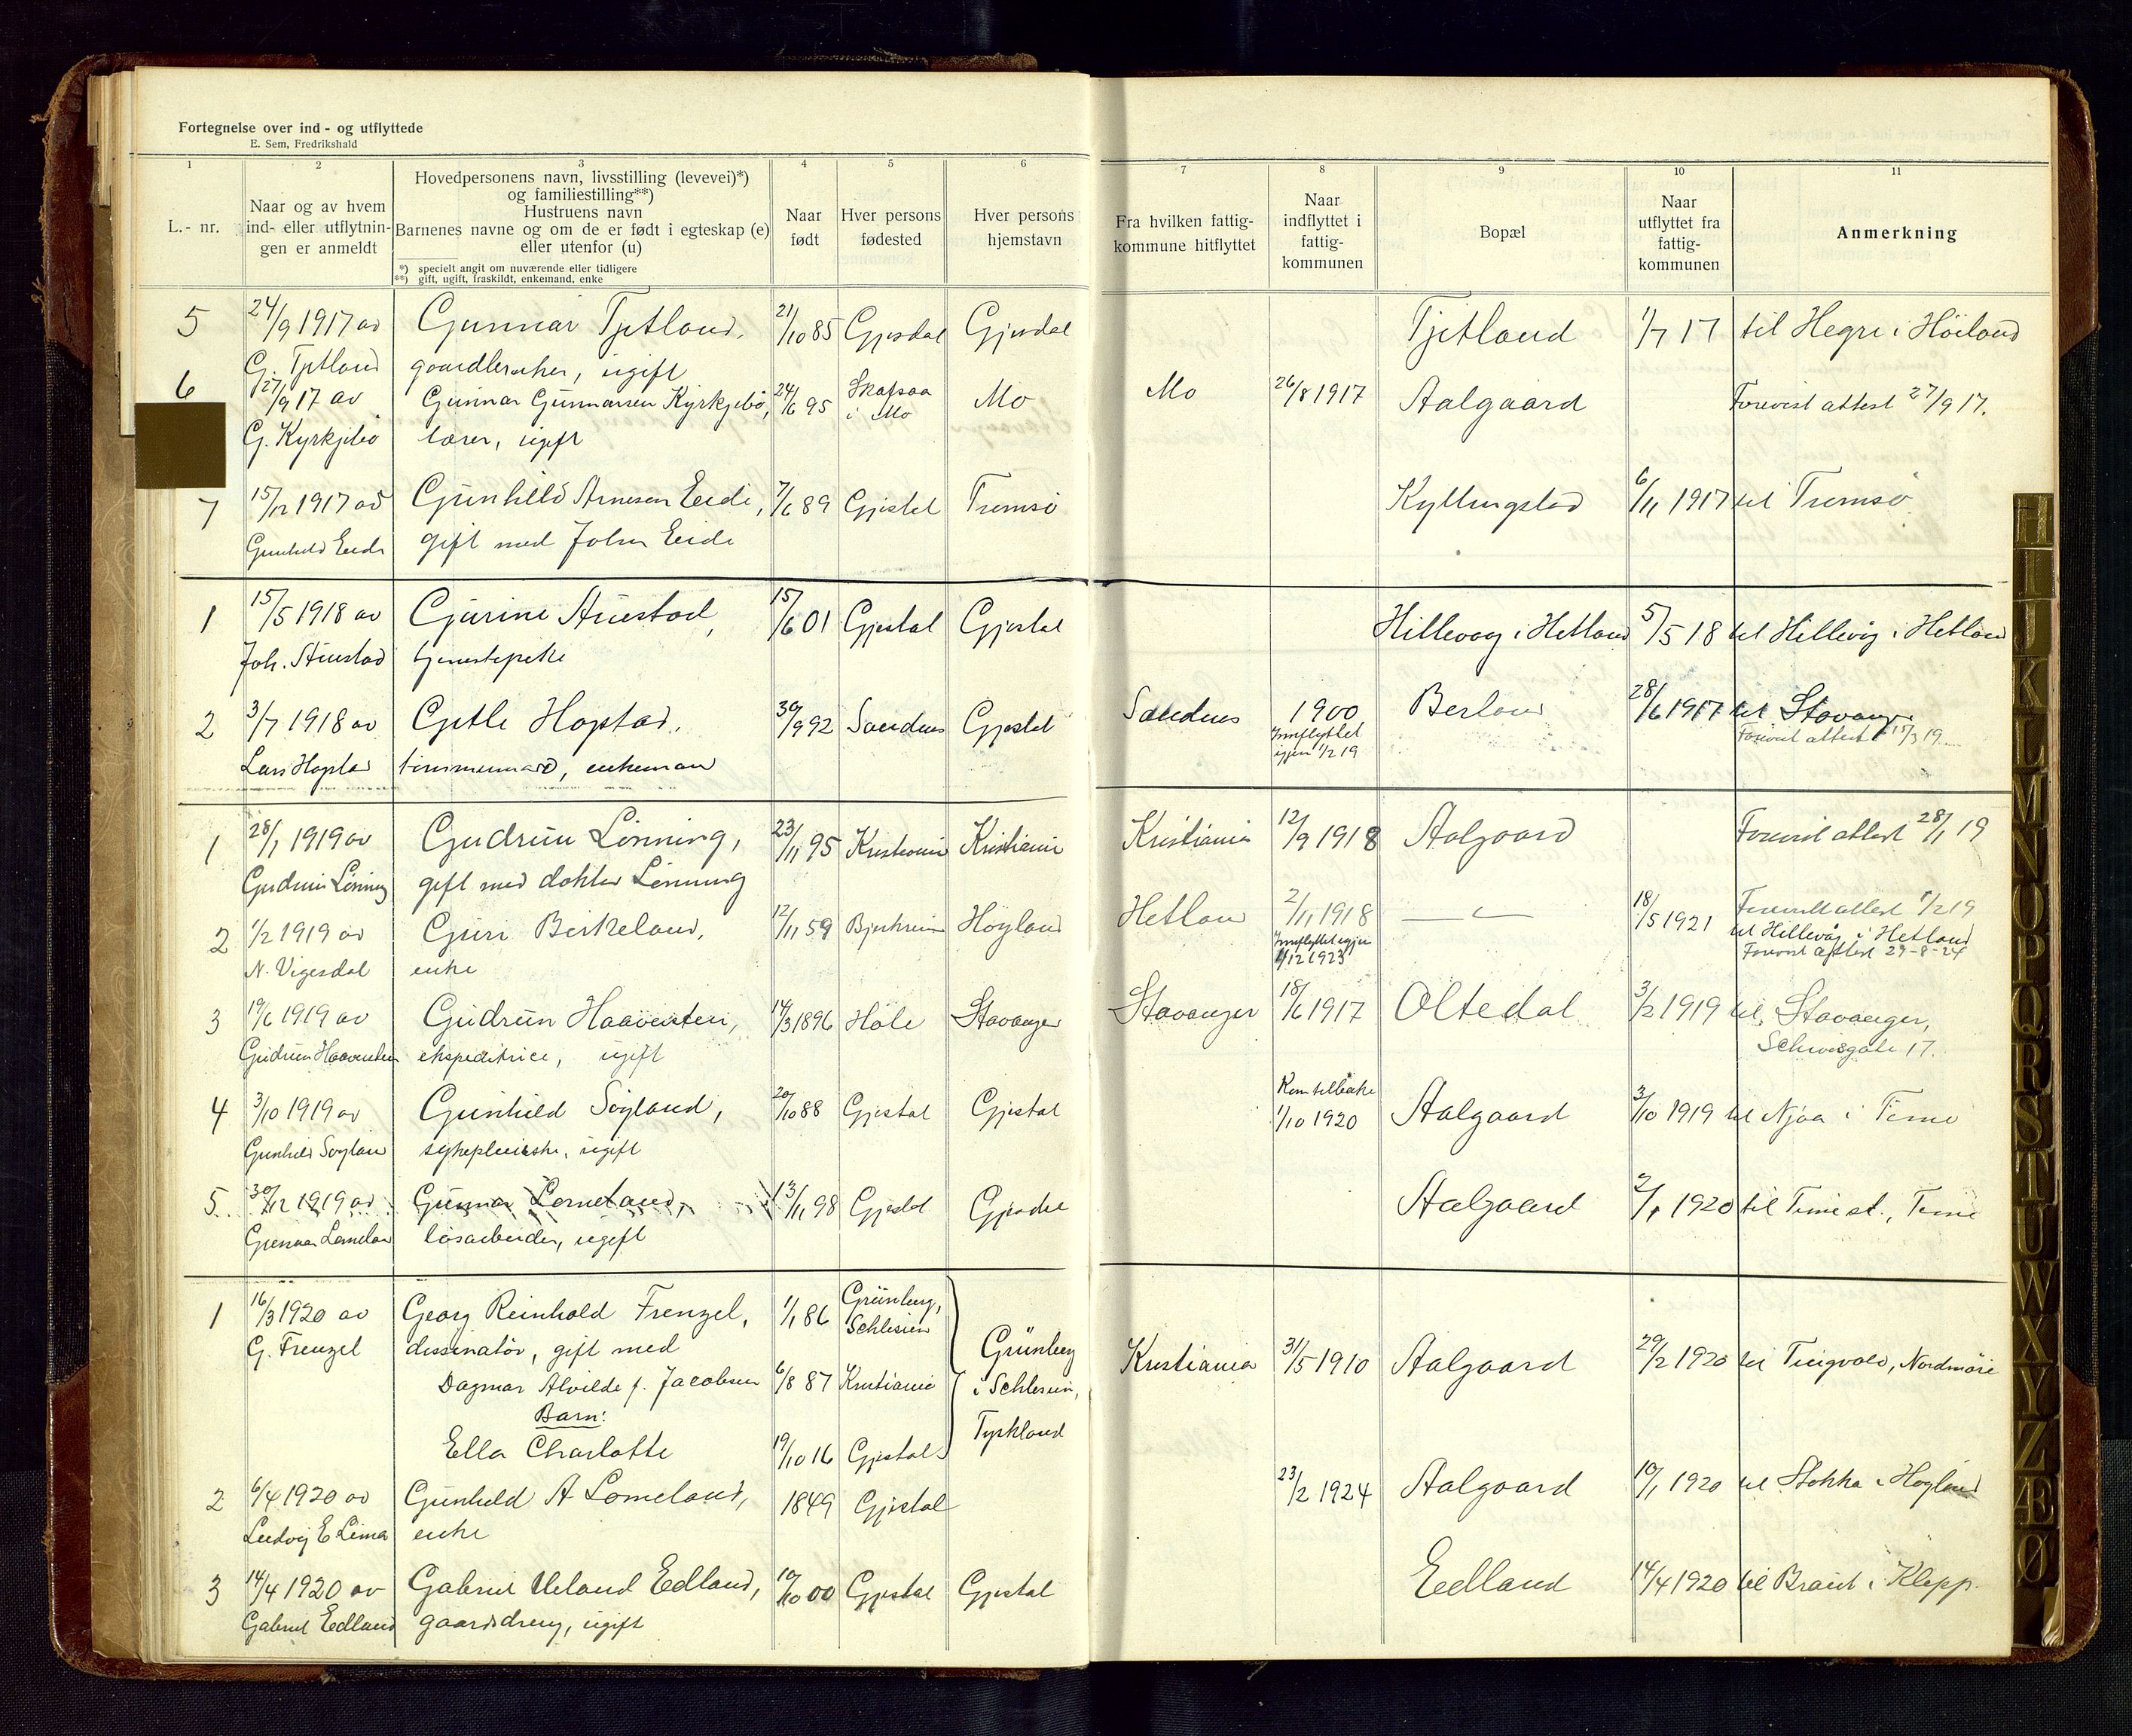 Fortegnelse over ind - og utflyttede
E. Sem, Fredrikshald
1 2 3 4 5 6 7 8 9 10 11
L.- nr.
Naar og av hvem
ind- eller utflytnin-
gen er anmeldt
Hovedpersonens navn, livsstilling (levevei)*)
og familiestilling**)
Hustruens navn
Barnenes navne og om de er født i egteskap (e)
eller utenfor (u)
*) specielt angit om nuværende eller tidligere
**) gift, ugift, fraskildt, enkemand, enke
Naar
født
Hver persons
fødested
Hver persons
hjemstavn
Fra hvilken fattig-
kommune hitflyttet
Naar
indflyttet i
fattig-
kommunen
Bopæl
Naar
utflyttet fra
fattig-
kommunen
Anmerkning
5 24/9 1917 av Gunnar Tjetland, 21/10 85 Gjesdal Gjesdal Tjetland 1/7 17 til Hegre i Höiland
G. Tjetland ugift
6 27/9 17 av Gunnar Gunnarsen Kyrkjebö, 24/6 95 Skafsaa i Mo Mo Mo 26/8 1917 Aalgaard Forevist attest 27/9 17.
G. Kyrkjebö lærer, ugift
7 15/12 1917 av Gunhild Arnesen Eide, 7/6 89 Gjestal Tromsö Kyllingstad 6/11 1917 til Tromsö
Gunhild Eide gift med Johan Eide
1 15/5 1918 av Gurine Auestad, 15/6 01 Gjestal Gjestal Hillevaag i Hetland 5/5 18 til Hillevåg i Hetland
Joh. Auestad tjenestepike
2 3/7 1918 av Gitle Hogstad, 30/9 92 Sandnes Gjestal Sandnes 1900 Berland 28/6 1917 til Stavanger
Innflyttet igjen 1/2 19 Forevist attest 15/3 19
Lars Hogstad tömmermand, enkeman
1 28/1 1919 av Gudrun Lönning, 23/11 95 Kristiania Kristiania Kristiania 12/9 1918 Aalgaard Forevist attest 28/1 19
Gudrun Lönning gift med doktor Lönning
2 1/2 1919 av Guri Birkeland, 12/11 59 Bjerkreim Höyland Hetland 2/11 1918 — " — 18/5 1921 Forevist attest 1/2 19
til Hillevåg i Hetland
Innflyttet igjen 1/12 1923 Forevist Attest 29-8-24
N. Vigesdal enke
3 19/6 1919 av Gudrun Haaversten, 14/3 1896 Höle Stavanger Stavanger 18/6 1917 Oltedal 3/2 1919 til Stavanger,
Gudrun Haaversten ekspeditrice, ugift 17.
Kom tilbake
4 3/10 1919 av Gunhild Sögland, 20/10 88 Gjestal Gjestal 1/10 1920 Aalgaard 3/10 1919 til Njaa i Time
Gunhild Sögland sykepleierske, ugift
5 30/12 1919 av Gunnar Lomeland, 13/11 98 Gjestal Gjesdal Aalgaard 2/1 1920 til Time st., Time
Gunnar Lomeland lösarbeider, ugift
1 16/3 1920 av Georg Reinhold Frenzel, 1/1 86 Grünberg, Schlesien
G. Frenzel dessinatör, gift med Grünberg Kristiania 31/5 1910 Aalgaard 29/2 1920 til Tingvold, Nordmöre
Dagmar Alvilde f. Jacobsen 6/8 87 Kristiania i Schlesien,
Barn: Tyskland
Ella Charlotte 19/10 16 Gjestal
2 6/4 1920 av Gunhild A Lomeland, 1849 Gjestal 23/2 1924 Aalgaard 10/1 1920 til Stokka i Högland
Ludvig E Lima enke
3 14/4 1920 av Gabriel Ueland Edland, 10/10 00 Gjestal Gjestal Edland 14/4 1920 til Braut i Klepp.
Gabriel Edland gaardsdreng, ugift
H
I
J
K
L
M
N
O
P
Q
R
S
T
U
W
X
Y
Z
Æ
Ø